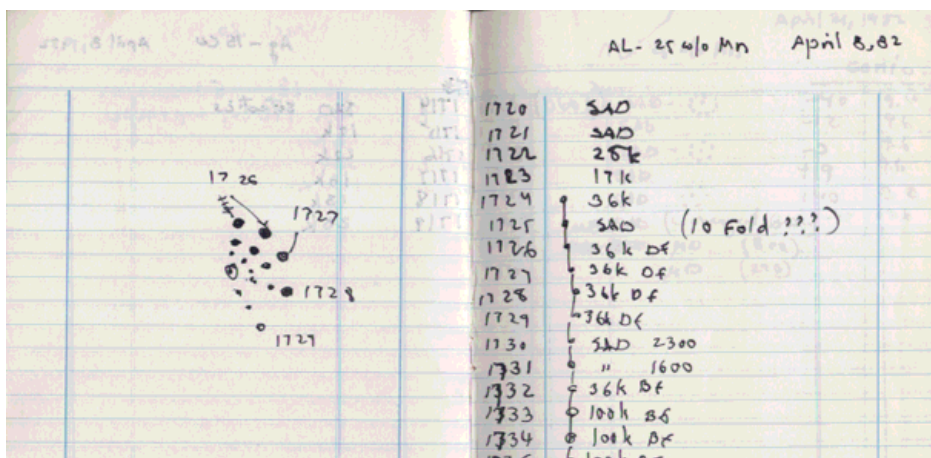 AL-25 w/o Mn April 8, 82
1720 SAD
1721 SAD
1722 25k
1723 17k
1724 36k
1725 SAD (10 Fold ???)
1726 36k Df
1727 36k Df
1728 36k Df
1729 36k Df
1730 SAD 2300
1731 " 1600
1732 36k Bf
1733 100k Bf
1734 100k Bf
1726
1727
1728
1729